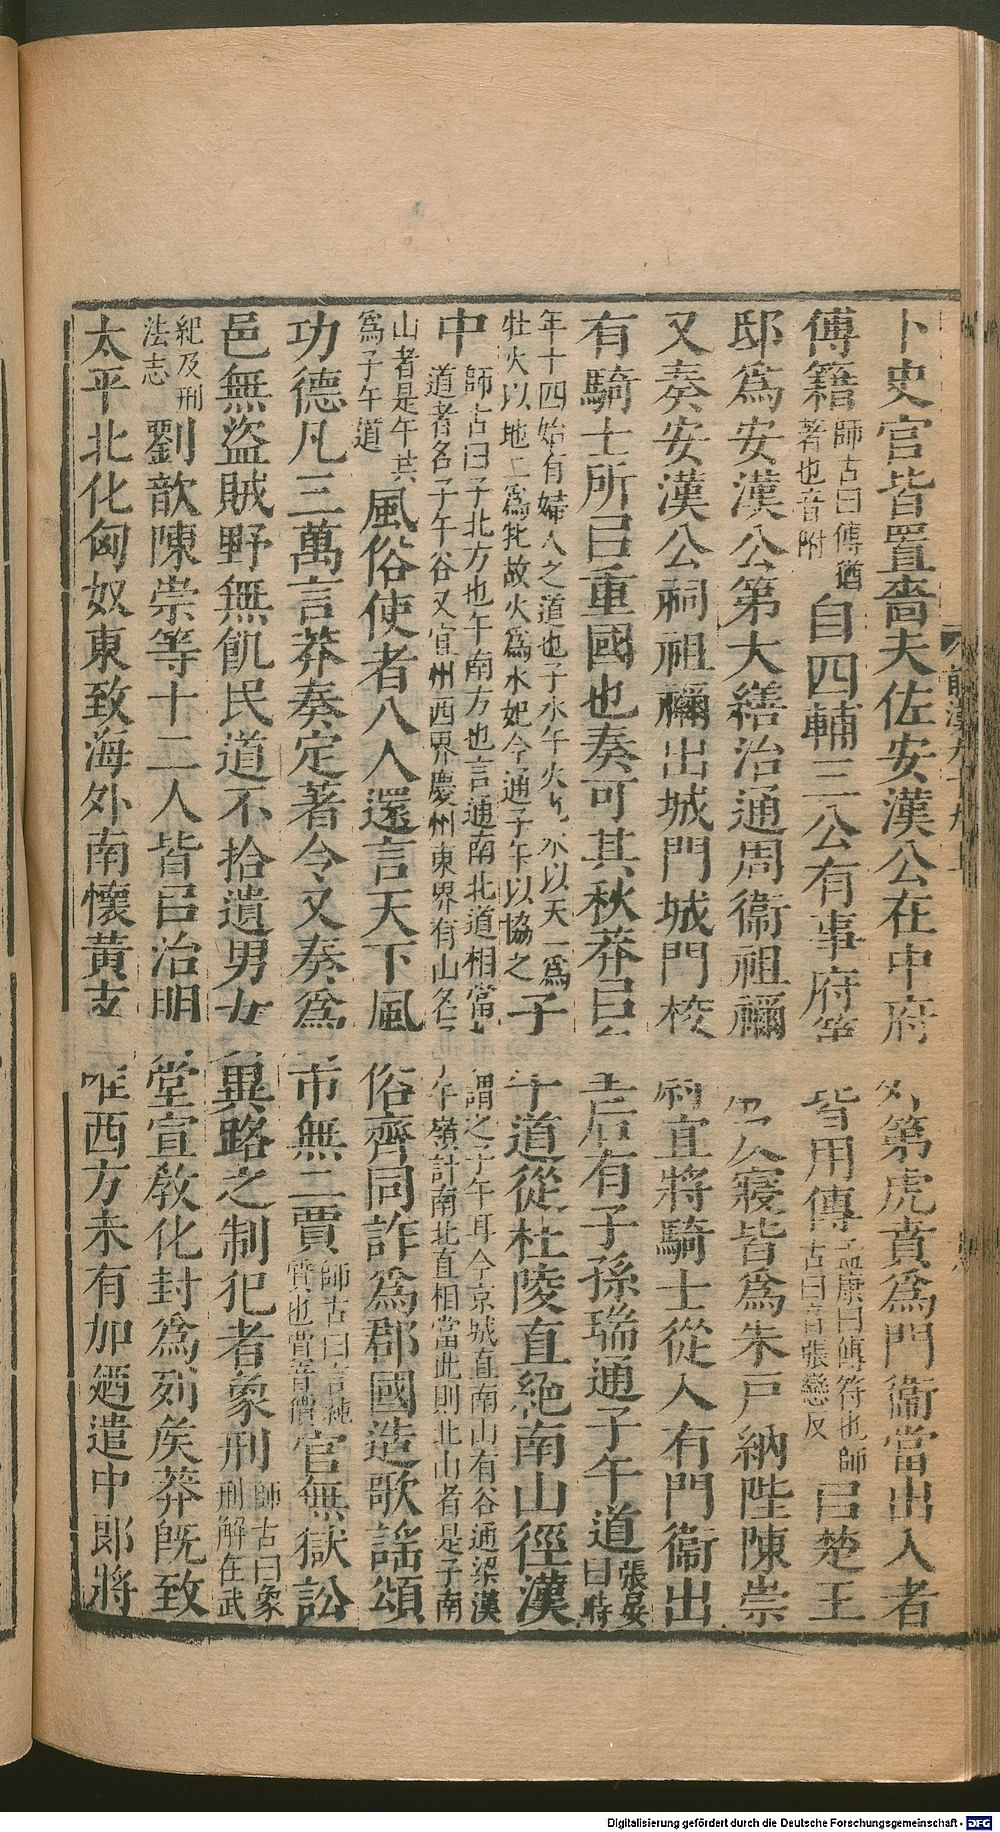 卜史官皆置嗇夫佐安漢公在中府外第虎賁爲門衞當出入者
傅籍師古曰傅猶著也音附自四輔三公有事府第皆用傳孟康曰傳符也師古曰音張戀反㠯楚王
邸爲安漢公第大繕治通周衞祖禰廟及寢皆爲朱戶納陛陳崇
又奏安漢公祠祖禰出城門城門校尉宜將騎士從入有門衞出
有騎士所㠯重國也奏可其秋莽㠯皇后有子孫瑞通子午道張晏曰時
年十四始有婦人之道也子水午火也水以天一爲牡火以地二爲牝故火爲水妃今通子午以協之子午道從杜陵直絕南山徑漢
中師古曰子北方也午南方也言通南北道相當故謂之子午耳今京城直南山有谷通梁漢道者名子午谷又宜州西界慶州東界有山名子午嶺計南北直相當此則北山者是子南
山者是午共爲子午道風俗使者八人還言天下風俗齊同詐爲郡國造歌謠頌
功德凡三萬言莽奏定著令又奏爲市無二賈師古曰言純質也賈音價官無獄訟
邑無盜賊野無飢民道不拾遺男女異路之制犯者象刑師古曰象刑解在武
紀及刑法志劉歆陳崇等十二人皆㠯治明堂宣敎化封爲列矦莽旣致
太平北化匈奴東致海外南懷黃支唯西方未有加廼遣中郞將
前漢九十九上
Digitalisierung gefördert durch die Deutsche Forschungsgemeinschaft - DFG